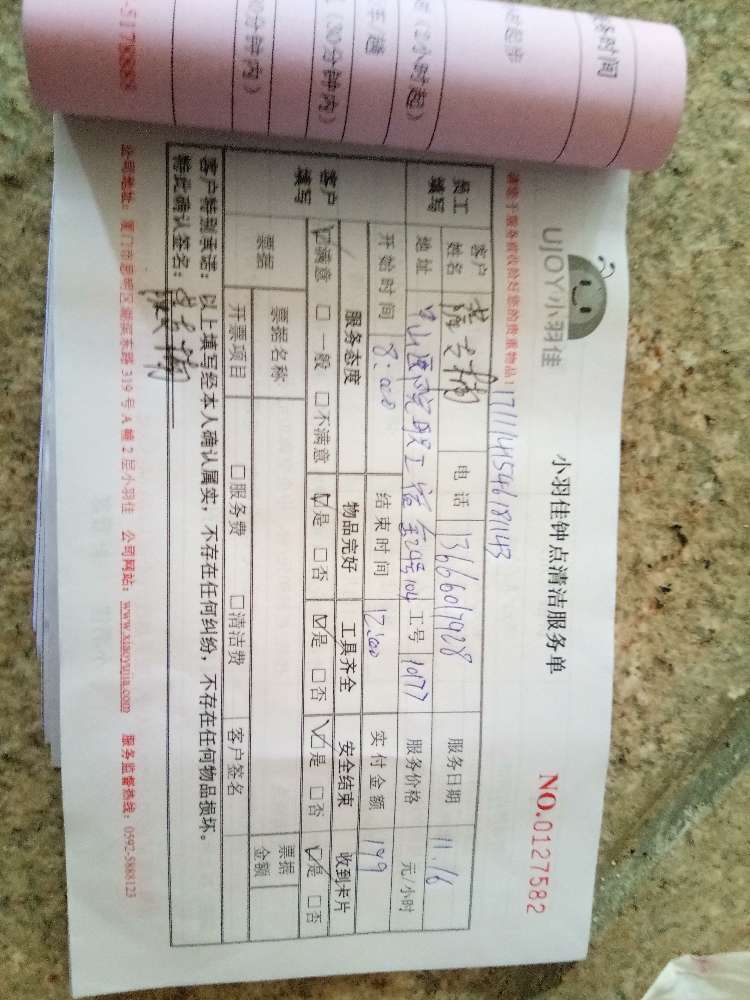 务时间
时起步
起（2小时起）
（30分钟内）
0分钟内）
UJOY小羽佳
小羽佳钟点清洁服务单
NO.0127582
请您于服务前收拾好您的贵重物品！
1711141546181143
员工填写
客户姓名
电话 13666017928
服务日期 11.16
地址 中山医院职工宿舍29号104
工号 1077
服务价格 元/小时
开始时间 8:00
结束时间 12:00
实付金额 199
客户填写
服务态度 物品完好 工具齐全 安全结束 收到卡片
☑满意 □一般 □不满意 ☑是 □否 ☑是 □否 ☑是 □否 ☑是 □否
票据 票据名称 票据金额
开票项目 □服务费 □清洁费 客户签名
客户特别承诺：以上填写经本人确认属实，不存在任何纠纷，不存在任何物品损坏。
特此确认签名：
公司地址：厦门市思明区湖滨东路319号A幢2层小羽佳 公司网站：www.xiaoyujia.com 服务监督热线：0592-5888123